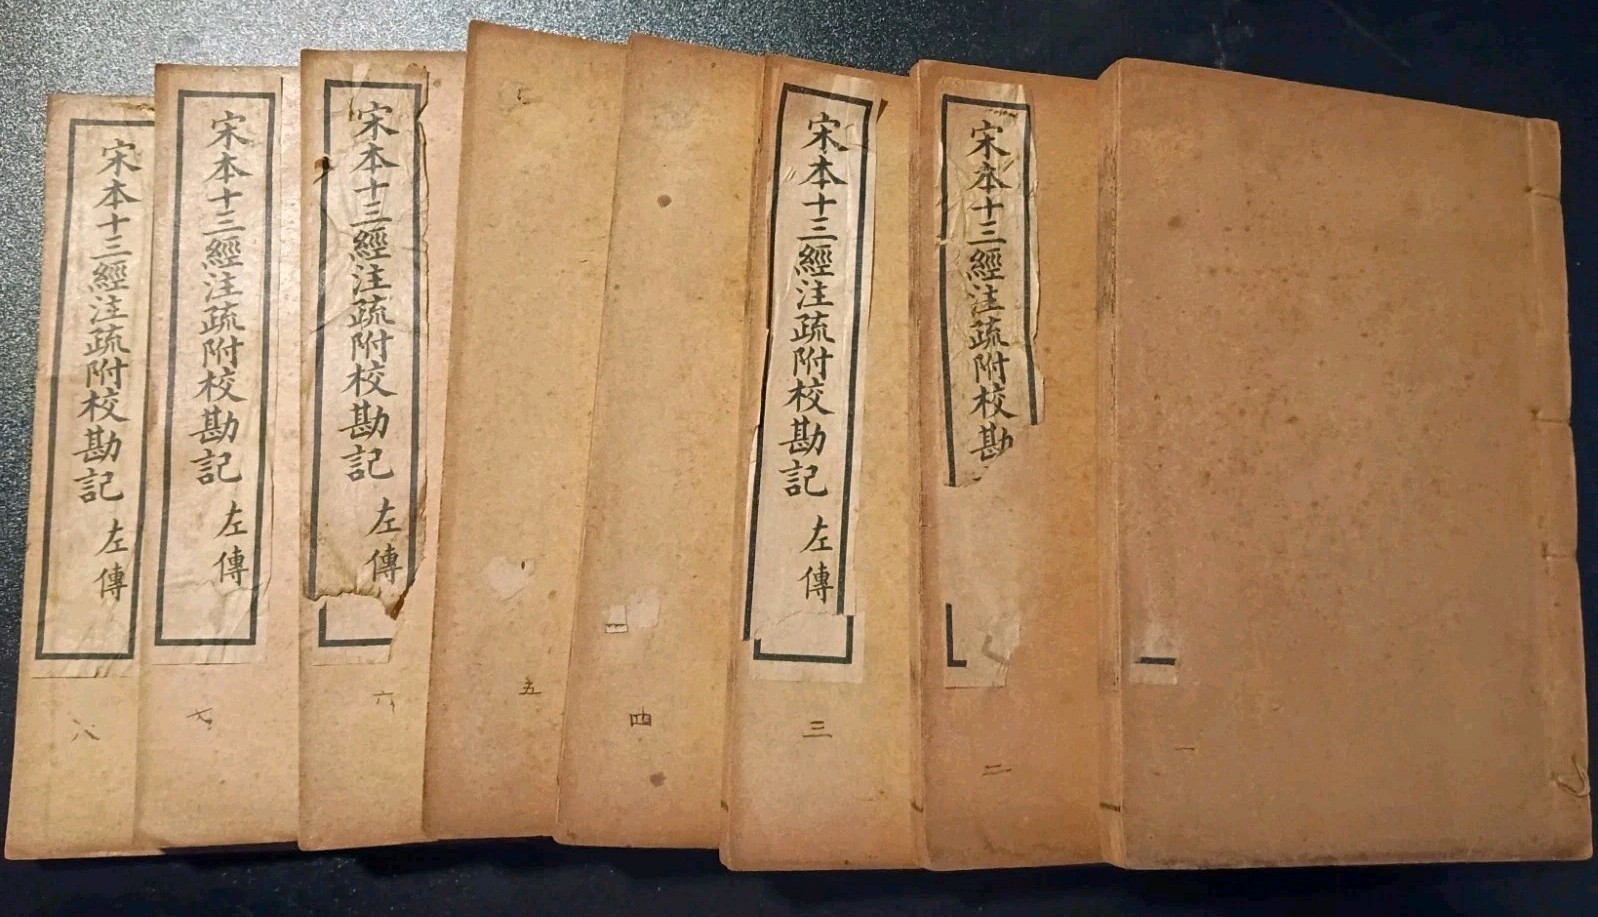 宋本十三經注疏附校勘記 左傳
八
宋本十三經注疏附校勘記 左傳
七
宋本十三經注疏附校勘記 左傳
六
五
四
宋本十三經注疏附校勘記 左傳
三
宋本十三經注疏附校勘
二
一